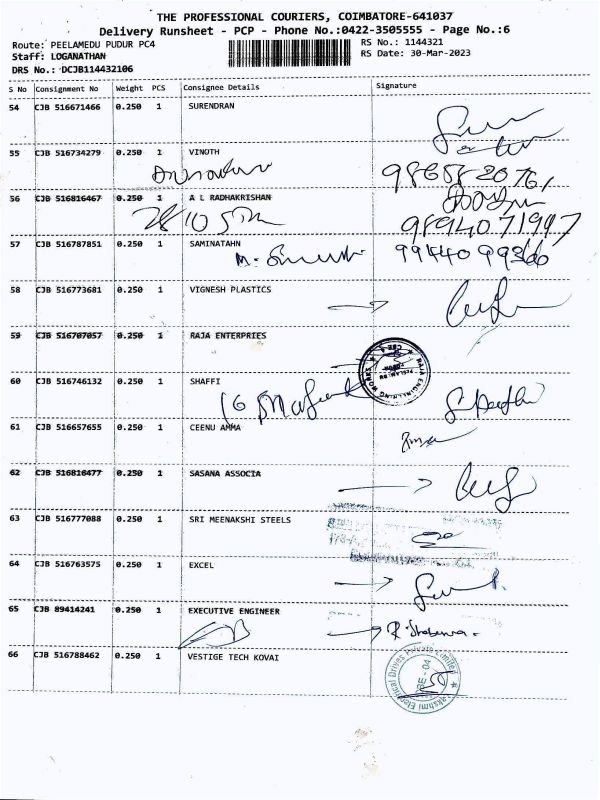 THE PROFESSIONAL COURIERS, COIMBATORE-641037
Delivery Runsheet - PCP - Phone No.:0422-3505555 - Page No.:6
Route: PEELAMEDU PUDUR PC4 RS No.: 1144321
Staff: LOGANATHAN RS Date: 30-Mar-2023
DRS No.: DCJB114432106
S No Consignment No Weight PCS Consignee Details Signature
54 CJB 516671466 0.250 1 SURENDRAN
55 CJB 516734279 0.250 1 VINOTH
56 CJB 516816467 0.250 1 A L RADHAKRISHAN
9894071997
57 CJB 516787851 0.250 1 SAMINATAHN
58 CJB 516773681 0.250 1 VIGNESH PLASTICS
59 CJB 516707057 0.250 1 RAJA ENTERPRIES
RAJA ENGINEERING WORKS
60 CJB 516746132 0.250 1 SHAFFI
61 CJB 516657655 0.250 1 CEENU AMMA
62 CJB 516816477 0.250 1 SASANA ASSOCIA
63 CJB 516777088 0.250 1 SRI MEENAKSHI STEELS
64 CJB 516763575 0.250 1 EXCEL
65 CJB 89414241 0.250 1 EXECUTIVE ENGINEER
66 CJB 516788462 0.250 1 VESTIGE TECH KOVAI
Lakshmi Electrical Drives Private Limited
CBE - 04